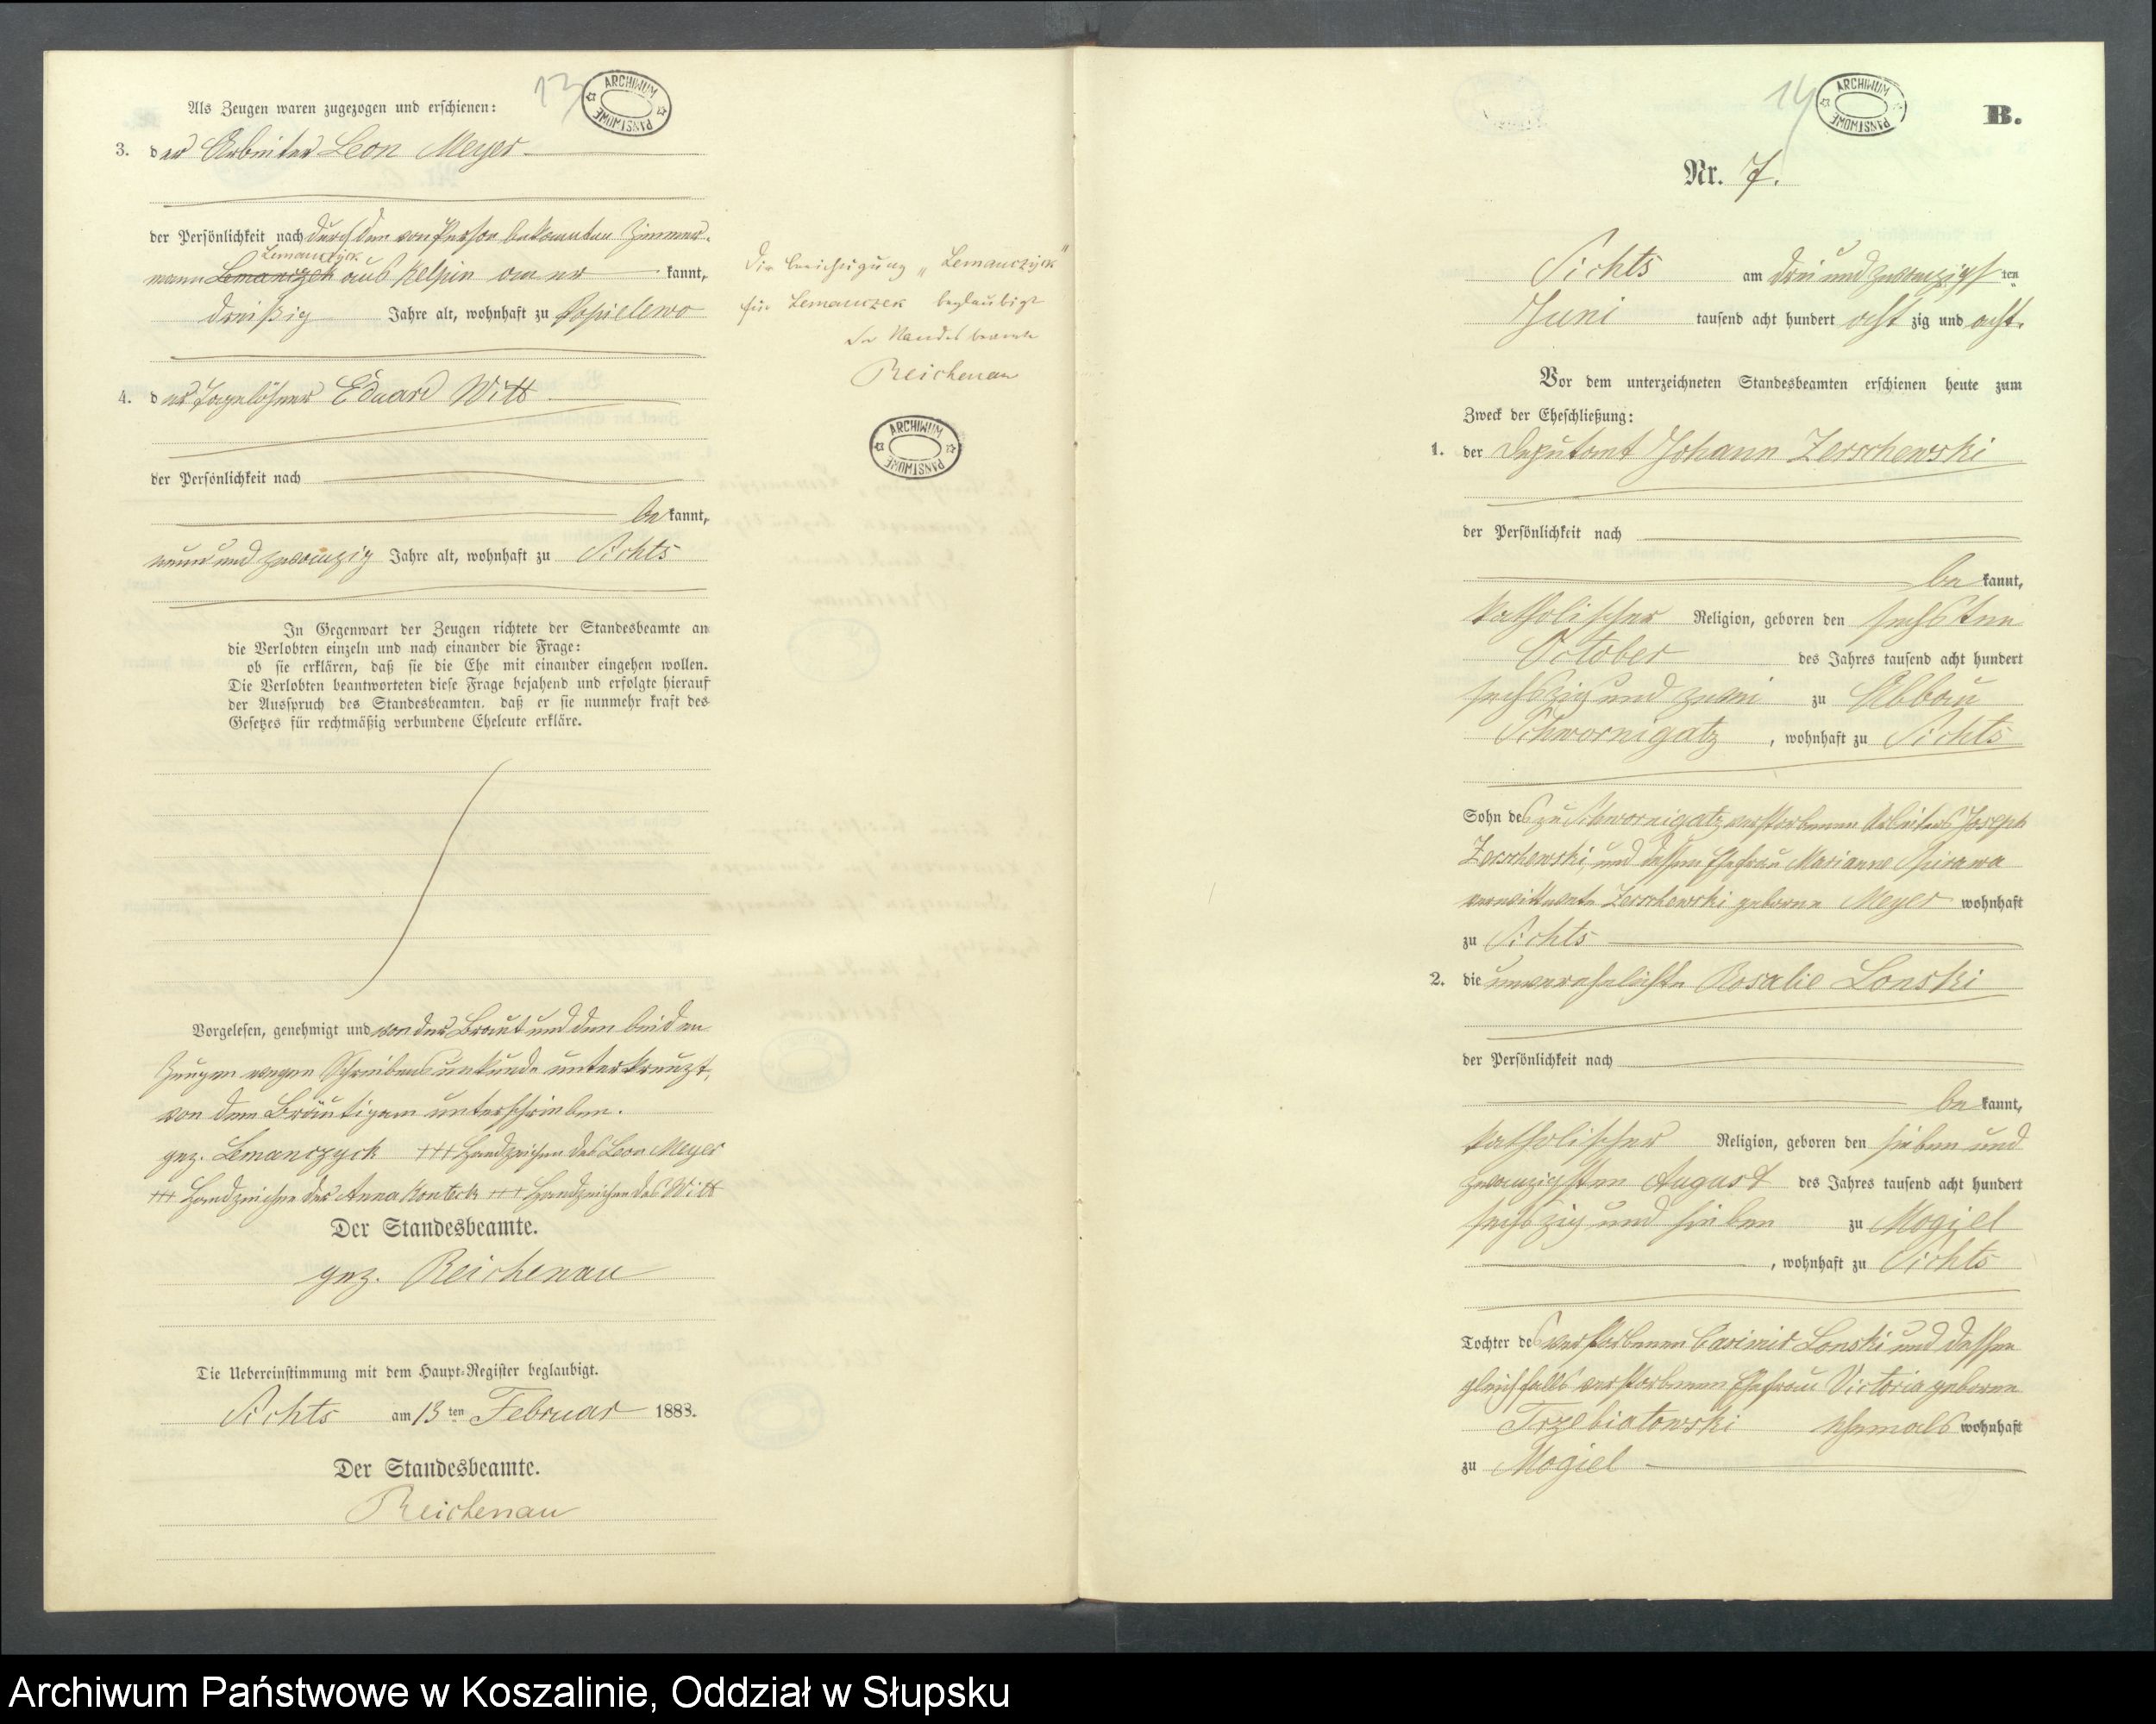 13
ARCHIWUM PAŃSTWOWE
Als Zeugen waren zugezogen und erschienen:
3. der Arbeiter Leon Meyer
der Persönlichkeit nach durch den von Person bekannten Zimmer-
Lemanczyk
mann Lemanczek aus Kelpin aner kannt,
dreißig Jahre alt, wohnhaft zu Popielewo
4. der Tagelöhner Eduard Witt
der Persönlichkeit nach
be kannt,
neun und zwanzig Jahre alt, wohnhaft zu Sichts
In Gegenwart der Zeugen richtete der Standesbeamte an
die Verlobten einzeln und nach einander die Frage:
ob sie erklären, daß sie die Ehe mit einander eingehen wollen.
Die Verlobten beantworteten diese Frage bejahend und erfolgte hierauf
der Ausspruch des Standesbeamten, daß er sie nunmehr kraft des
Gesetzes für rechtmäßig verbundene Eheleute erkläre.
Vorgelesen, genehmigt und von der Braut und den beiden
Zeugen wegen Schreibensunkunde unterkreuzt,
von dem Bräutigam unterschrieben.
gez. Lemanczyck +++ Handzeichen des Leon Meyer
+++ Handzeichen der Anna +++ Handzeichen des Witt
Der Standesbeamte.
gez. Reichenau
Die Uebereinstimmung mit dem Haupt-Register beglaubigt.
Sichts am 13 ten Februar 1888.
Der Standesbeamte.
Reichenau
Die Berichtigung „Lemanczyk"
für Lemanczek beglaubigt
Der Standesbeamte
Reichenau
ARCHIWUM PAŃSTWOWE
14
ARCHIWUM PAŃSTWOWE
B.
Nr. 7.
Sichts am drei und zwanzigsten
Juni tausend acht hundert acht zig und acht.
Vor dem unterzeichneten Standesbeamten erschienen heute zum
Zweck der Eheschließung:
1. der Deputant Johann Zerschewski
der Persönlichkeit nach
be kannt,
katholischer Religion, geboren den sechsten
October des Jahres tausend acht hundert
sechszig und zwei zu Abbau
Schwornigatz, wohnhaft zu Sichts
Sohn des zu Schwornigatz verstorbenen Arbeiters Joseph
Zerschewski, und dessen Ehefrau Marianne
verwittwete Zerschewski geborne Meyer wohnhaft
zu Sichts
2. die unverehelichte Rosalie Lonski
der Persönlichkeit nach
be kannt,
katholischer Religion, geboren den sieben und
zwanzigsten August des Jahres tausend acht hundert
sechszig und sieben zu Mogiel
, wohnhaft zu Sichts
Tochter des verstorbenen Casimir Lonski und dessen
gleichfalls verstorbenen Ehefrau Victoria geborne
Trzebiatowski ehemals wohnhaft
zu Mogiel
Archiwum Państwowe w Koszalinie, Oddział w Słupsku